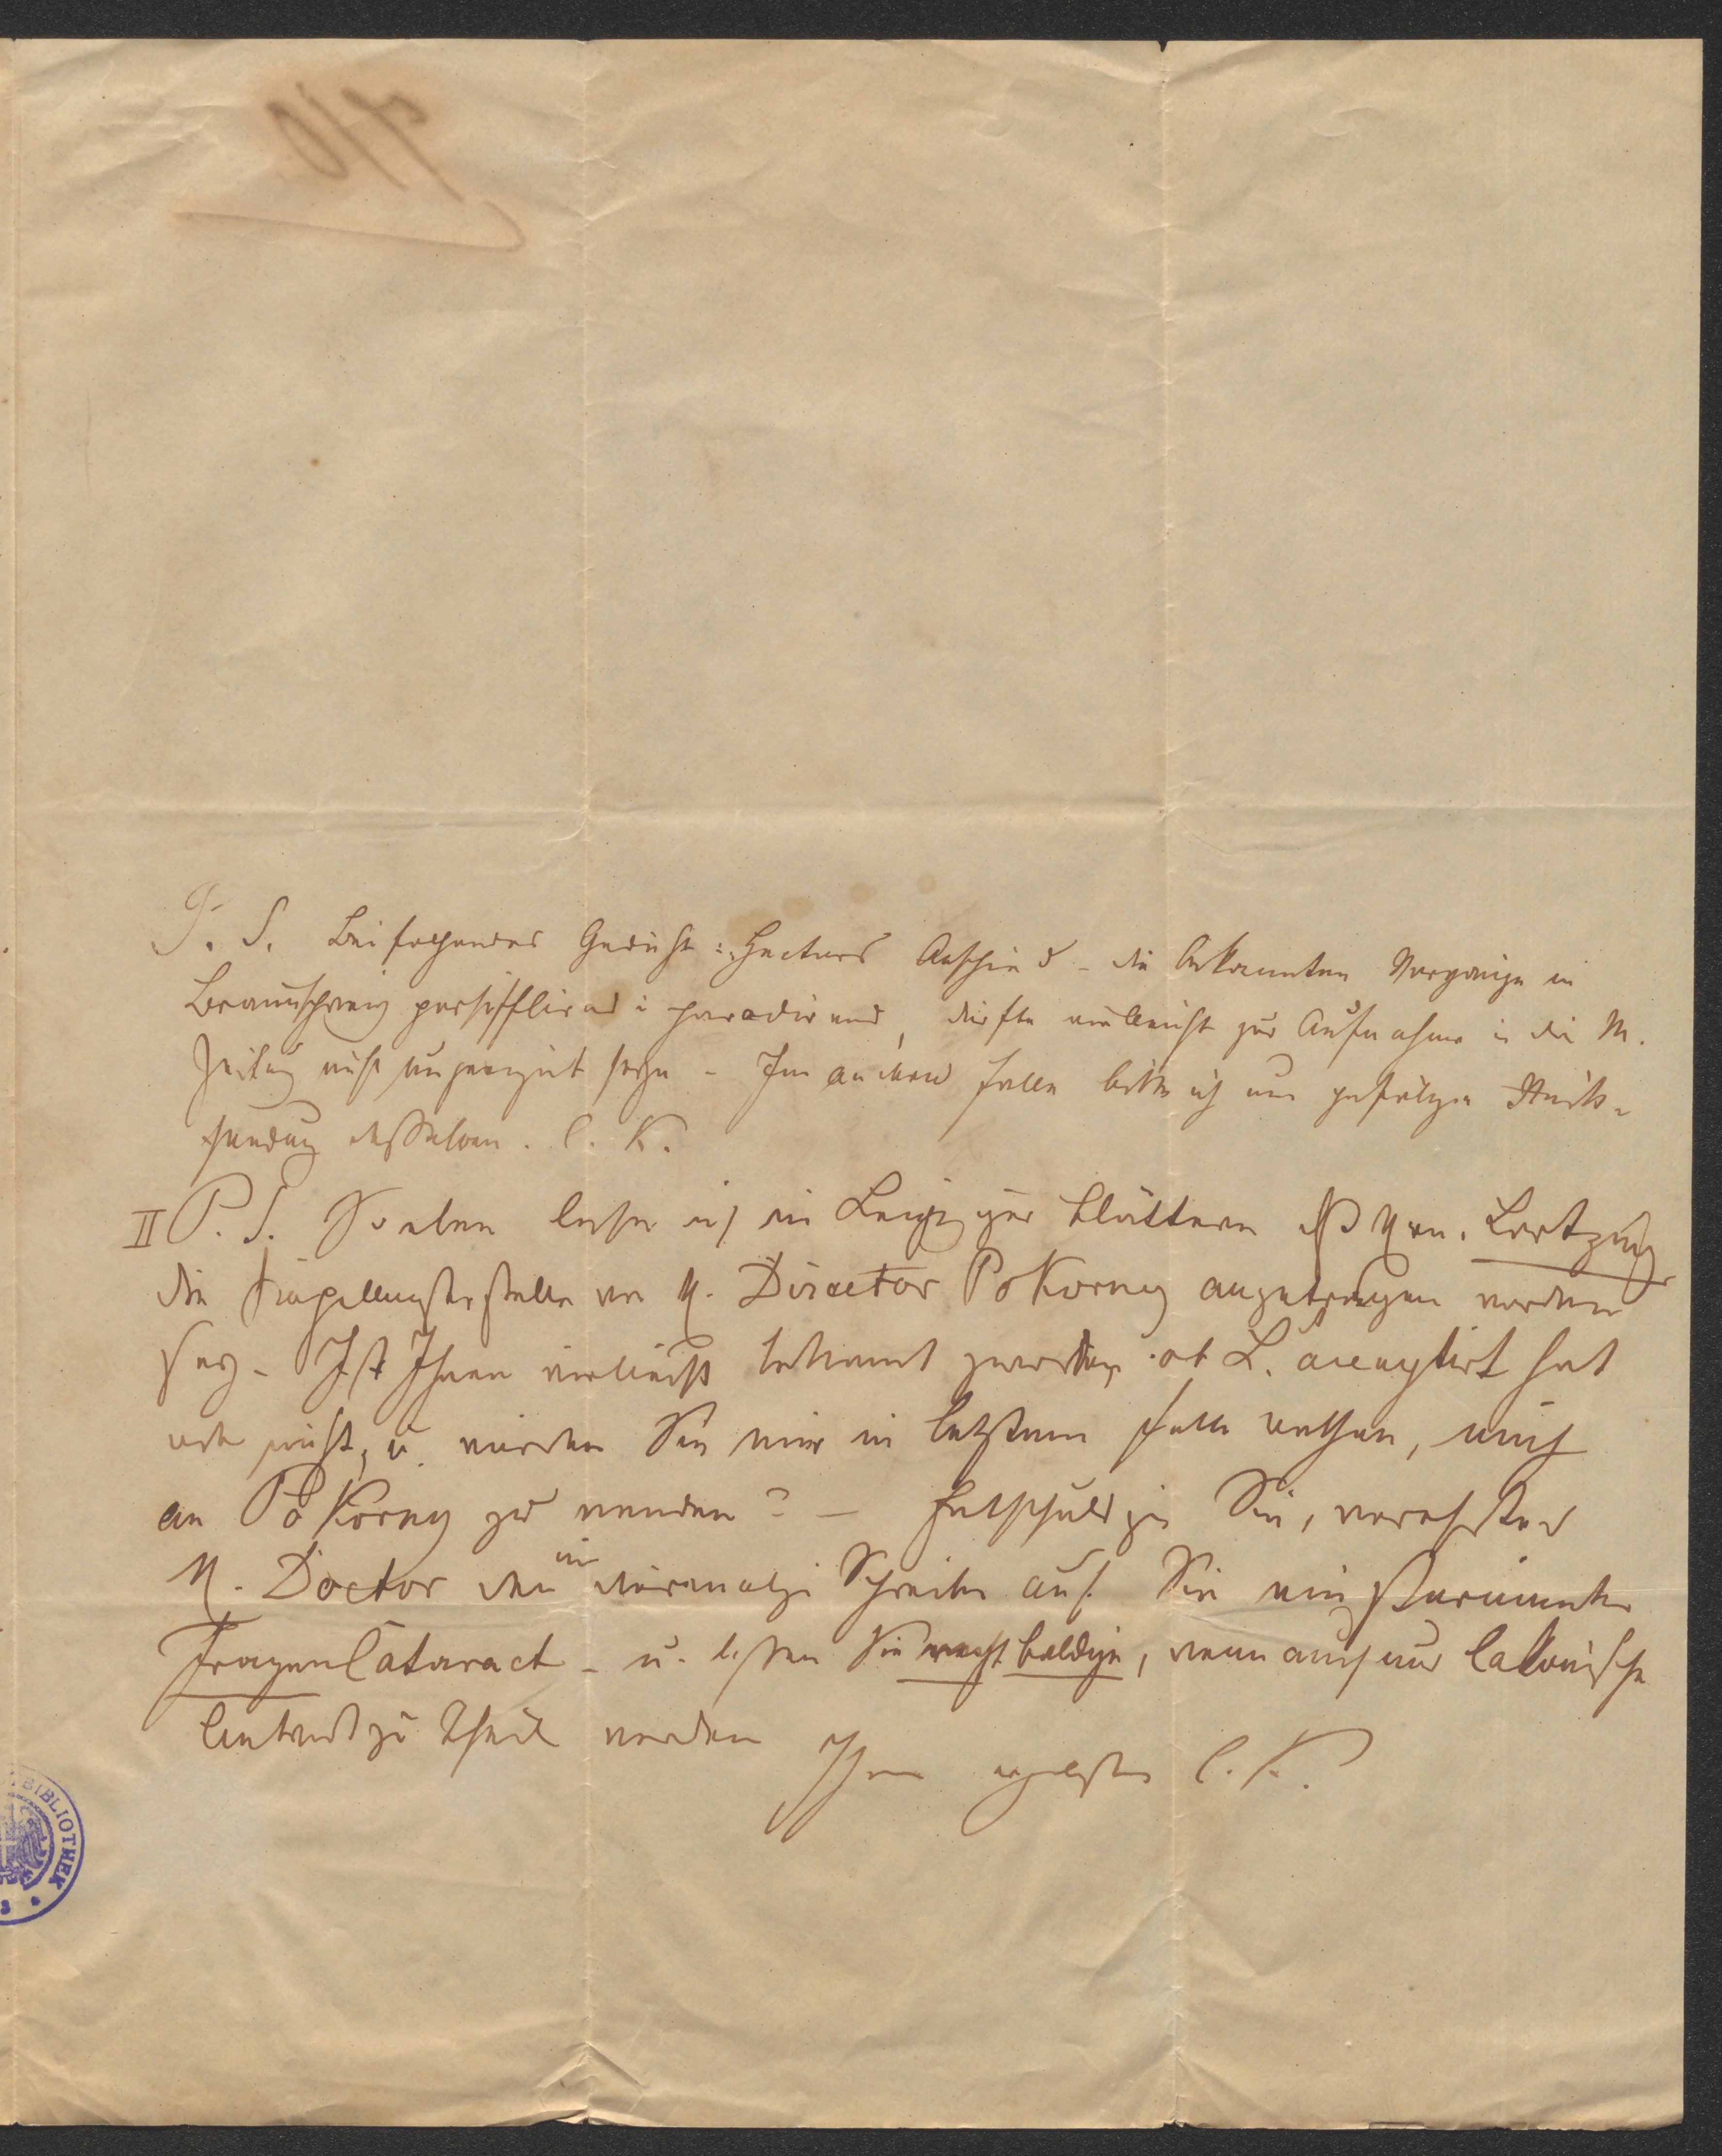 P. S. Beifolgendes Gedicht: Hectors Abschied – die bekannten Vorgänge in
Braunschweig persifflirend u parodirend, dürfte vielleicht zur Aufnahme in die M.
Zeitung nicht ungeeignet seyn – Im andern Falle bitte ich um gefällige Rück-
sendung desselben. C. K.
II P. S. So eben lese ich in Leipziger Blättern daß Hrn. Lortzing
die Kapellmeisterstelle von H. Director Pokorny angetragen worden
sey – Ist Ihnen vielleicht bekannt geworden ob L. acceptirt hat
oder nicht, u. würden Sie mir in letzterem Falle rathen, mich
an Pokorny zu wenden? – Entschuldigen Sie, verehrter
H. Doctor den in diesmalige Schreiben auf Sie einstürmenden
Fragen Cataract – u. lassen Sie recht baldige, wenn auch nur lakonische
Antwort zu Theil werden
Ihrem C. K.
BIBLIOTHEK